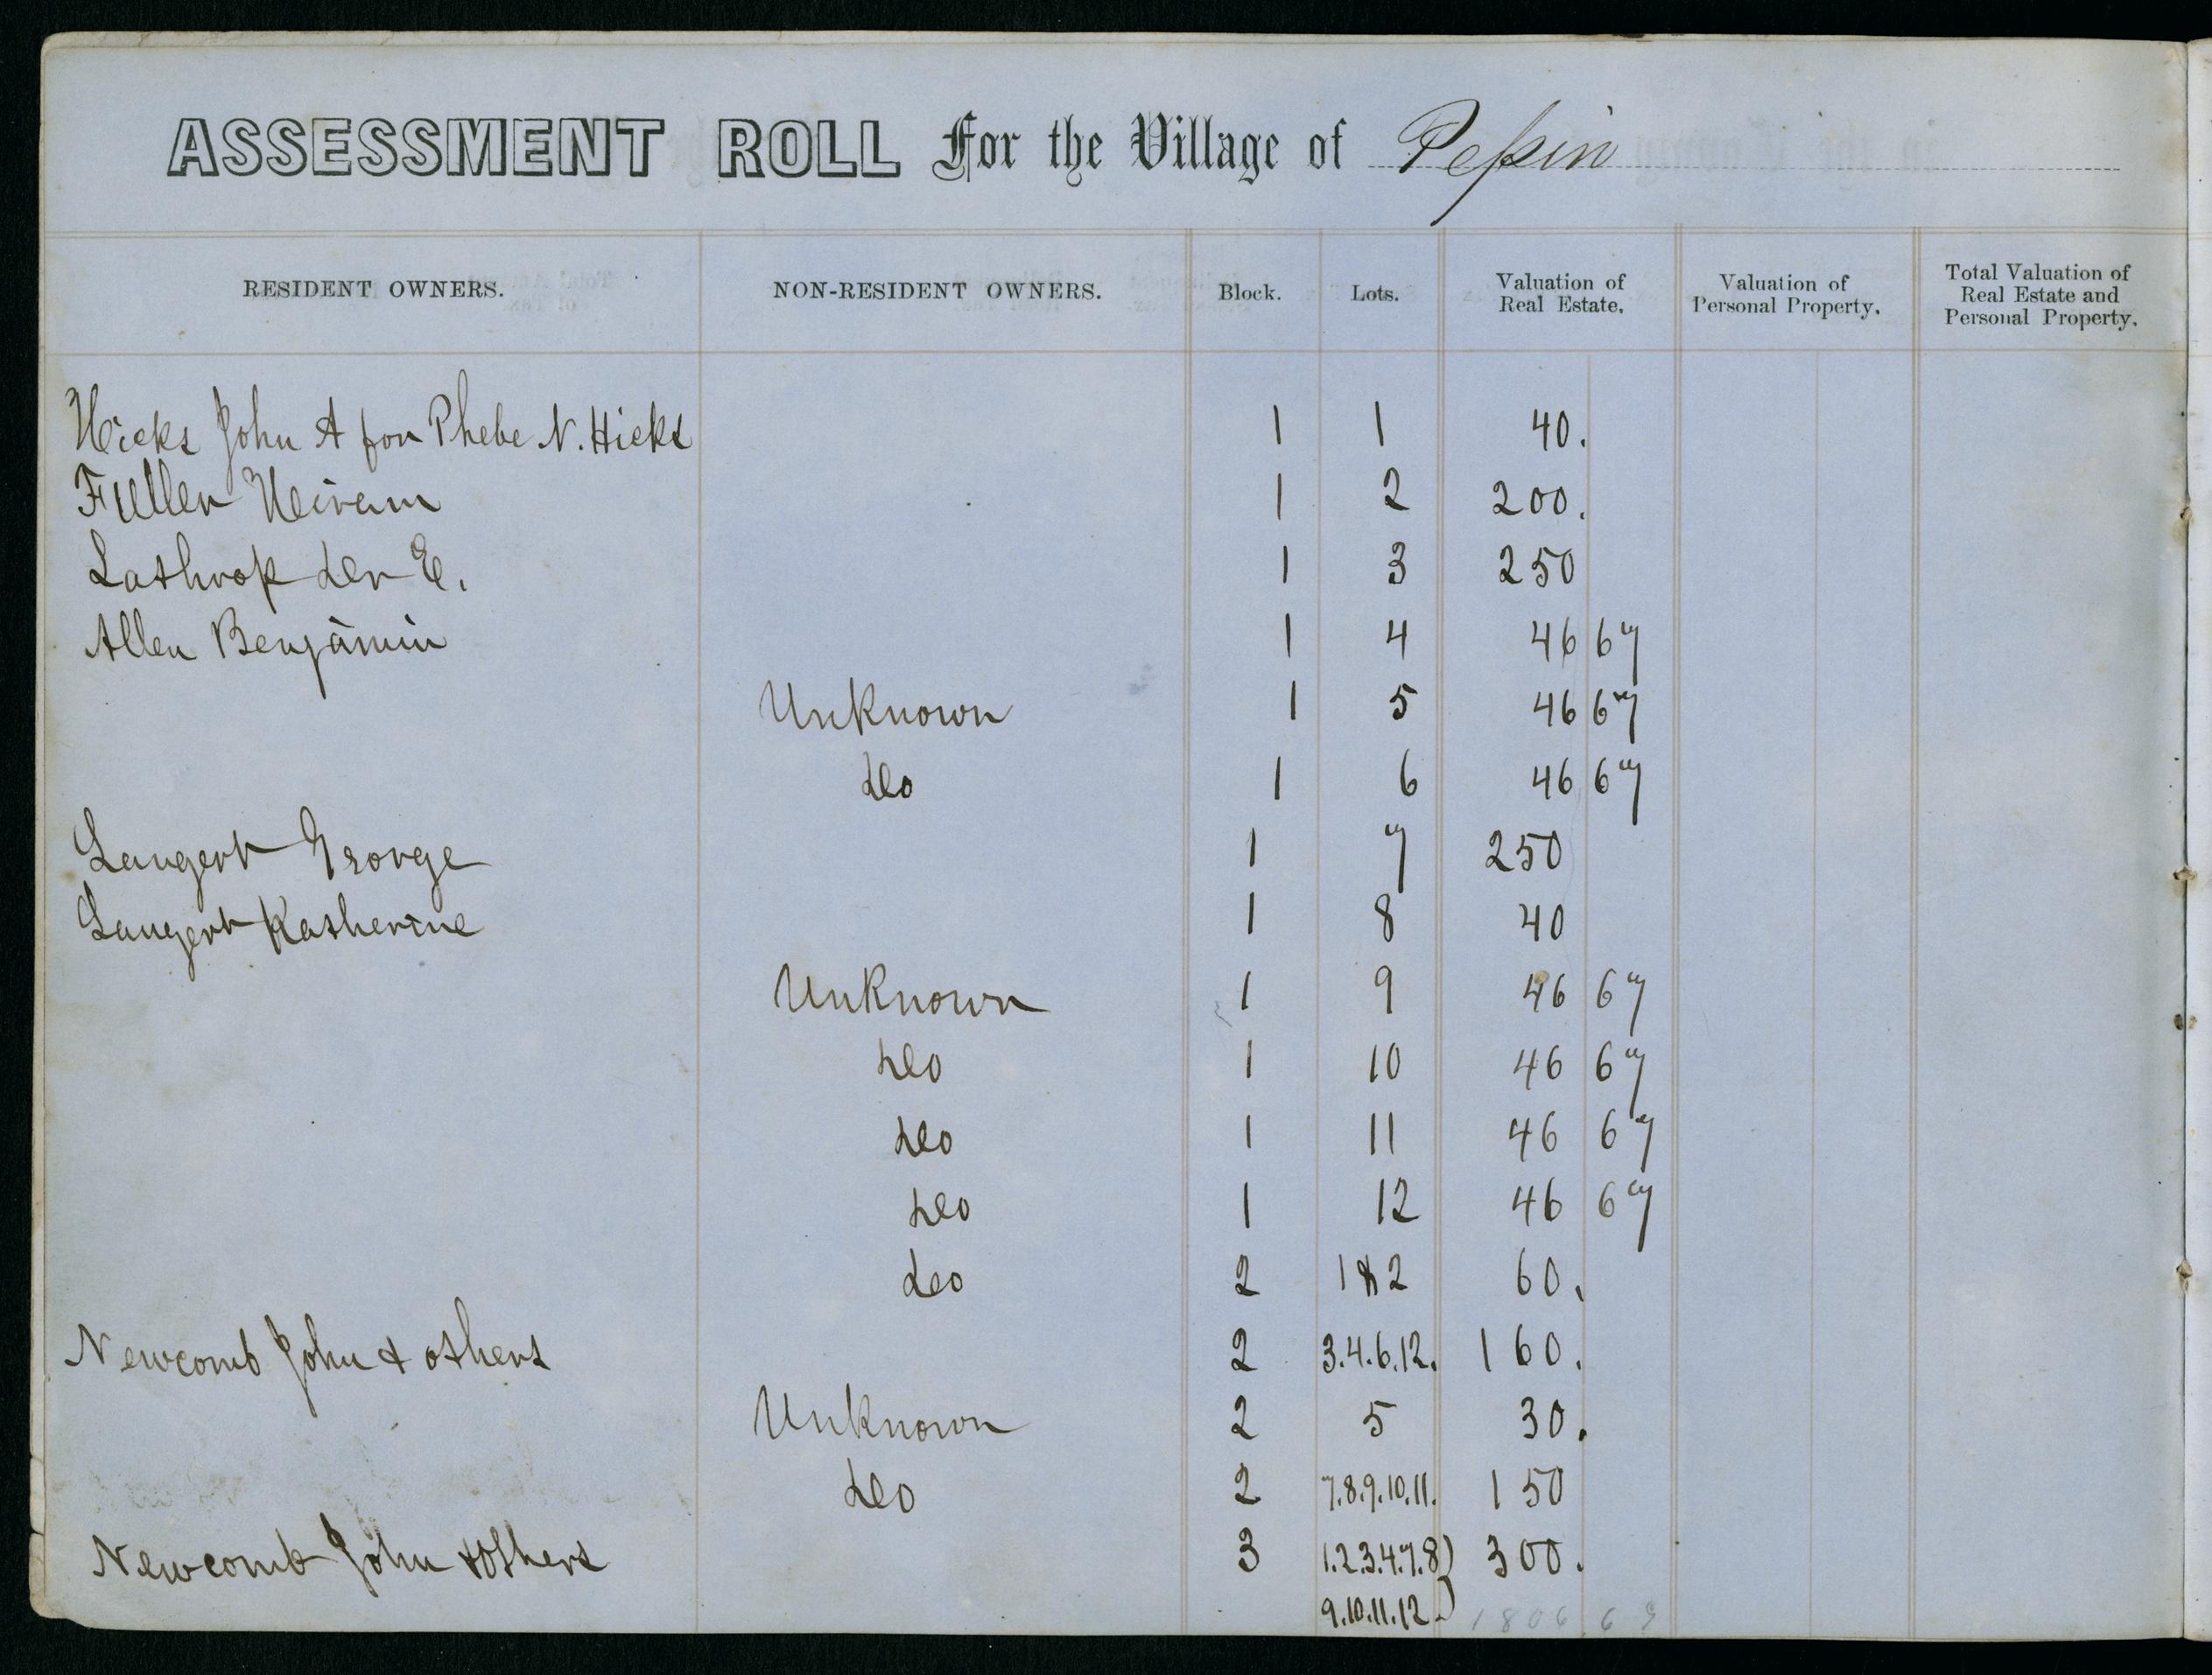 ASSESSMENT ROLL For the Village of Pepin
RESIDENT OWNERS. NON-RESIDENT OWNERS. Block. Lots. Valuation of Real Estate. Valuation of Personal Property. Total Valuation of Real Estate and Personal Property.
Hicks John A for Phebe N. Hicks 1 1 40.
Fuller Hiram 1 2 200.
Lathrop E. 1 3 250
Allen Benjamin 1 4 46 67
Unknown 1 5 46 67
do 1 6 46 67
Langert George 1 7 250
Langert Katherine 1 8 40
Unknown 1 9 46 67
do 1 10 46 67
do 1 11 46 67
do 1 12 46 67
do 2 1 & 2 60.
Newcomb John & others 2 3.4.6.12. 160.
Unknown 2 5 30.
do 2 7.8.9.10.11. 150
Newcomb John & Others 3 1.2.3.4.7.8) 300.
9.10.11.12.) 1806 69